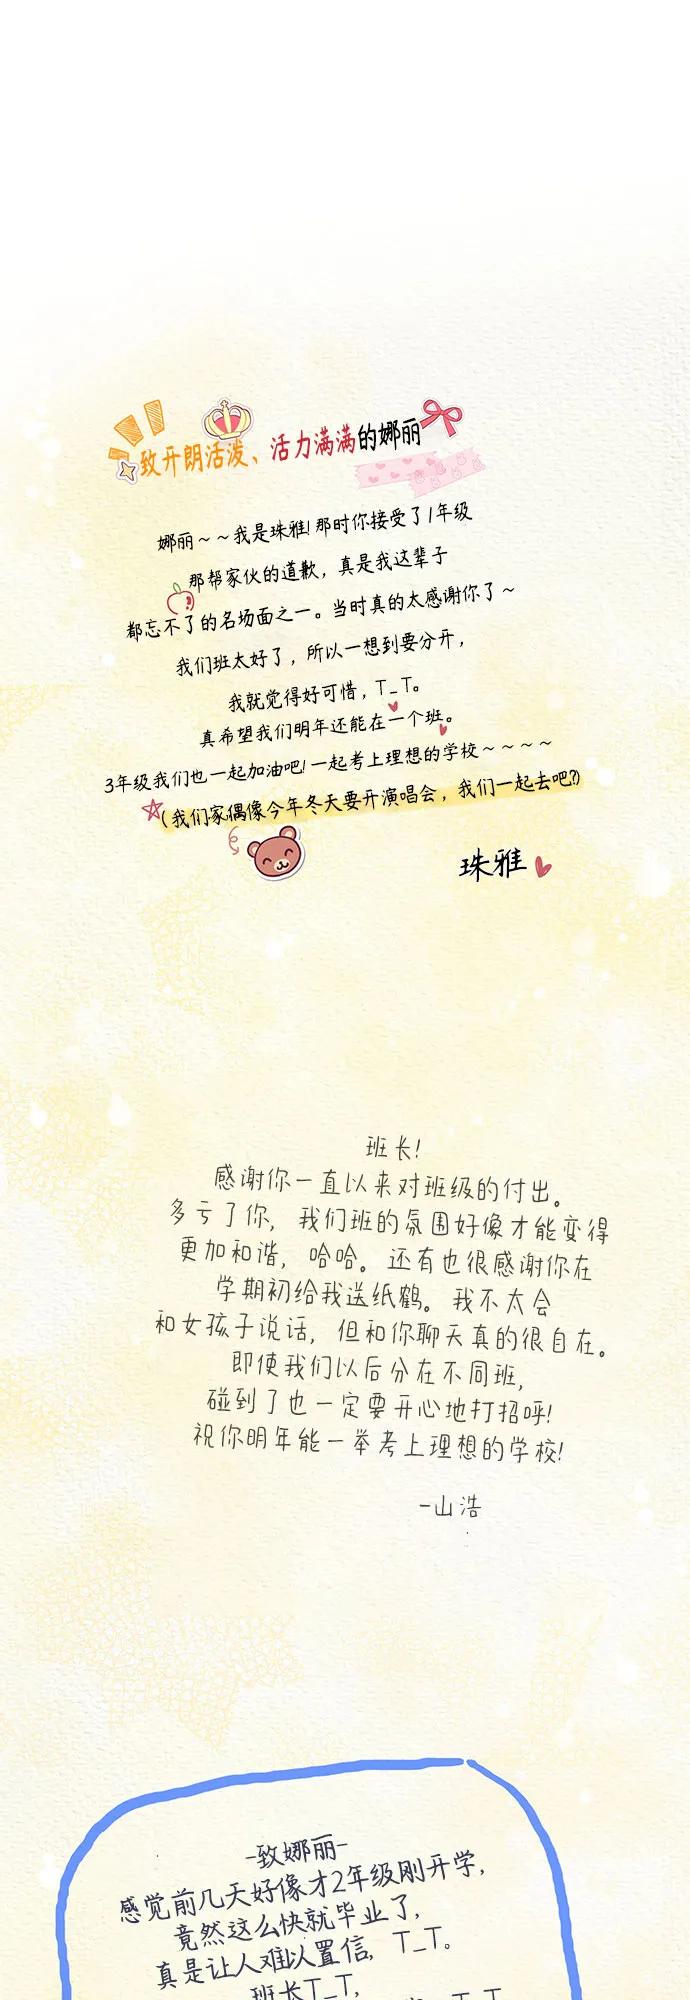 致开朗活泼、活力满满的娜丽
娜丽~~我是珠雅!那时你接受了1年级
那帮家伙的道歉，真是我这辈子
都忘不了的名场面之一。当时真的太感谢你了~
我们班太好了，所以一想到要分开，
我就觉得好可惜，T_T。
真希望我们明年还能在一个班。
3年级我们也一起加油吧!一起考上理想的学校~~~~
(我们家偶像今年冬天要开演唱会，我们一起去吧?)
珠雅
班长!
感谢你一直以来对班级的付出。
多亏了你，我们班的氛围好像才能变得
更加和谐，哈哈。还有也很感谢你在
学期初给我送纸鹤。我不太会
和女孩子说话，但和你聊天真的很自在。
即使我们以后分在不同班，
碰到了也一定要开心地打招呼!
祝你明年能一举考上理想的学校!
-山浩
-致娜丽-
感觉前几天好像才2年级刚开学，
竟然这么快就毕业了，
真是让人难以置信，T_T。
班长T_T，